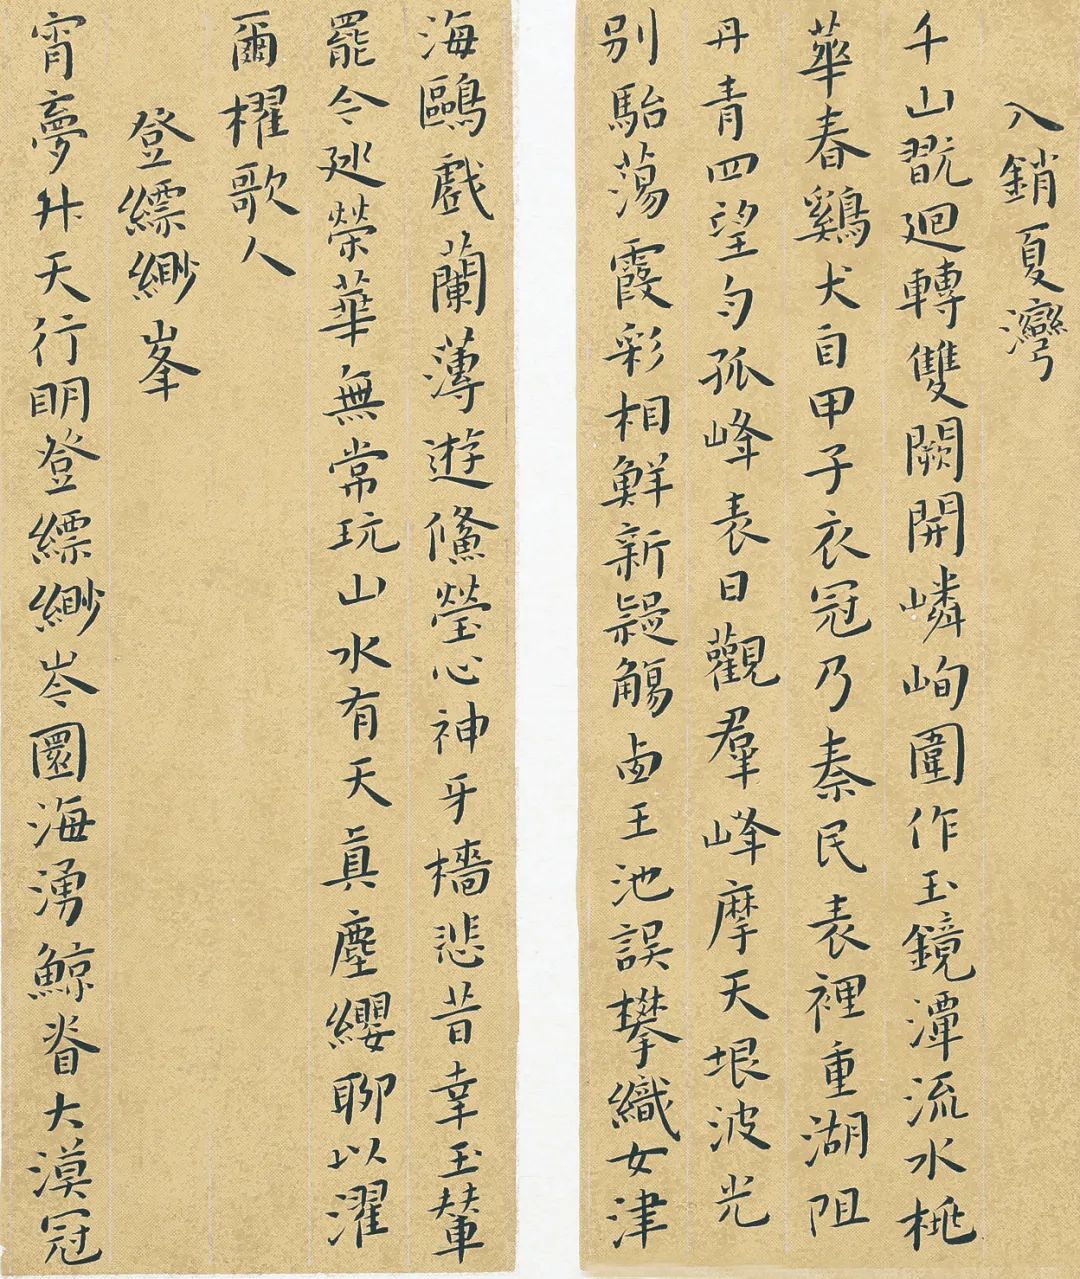 入銷夏灣
千山翫迴轉雙闕開嶙峋圍作玉鏡潭流水桃
華春鷄犬自甲子衣冠乃秦民表裡重湖阻
丹青四望勻孤峰表日觀羣峰摩天垠波光
別駘蕩霞彩相鮮新疑觴卥王池誤攀織女津
海鷗戲蘭薄遊鯈瑩心神牙檣悲昔幸玉輦
罷今廵榮華無常玩山水有天眞塵纓聊以濯
爾櫂歌人
登縹緲峯
宵夢升天行明登縹緲岑圜海湧鯨脊大漠冠